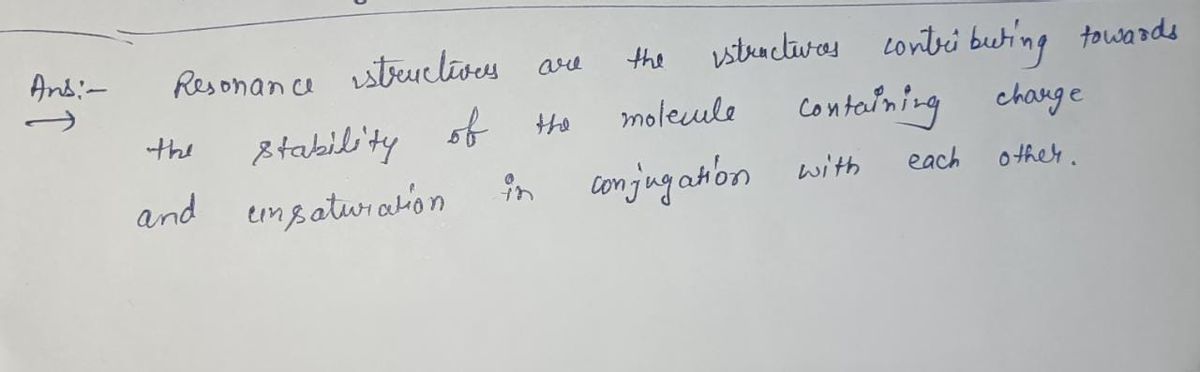 Ans:- Resonance structures are the structures contributing towards
the stability of the molecule containing charge
and unsaturation in conjugation with each other.